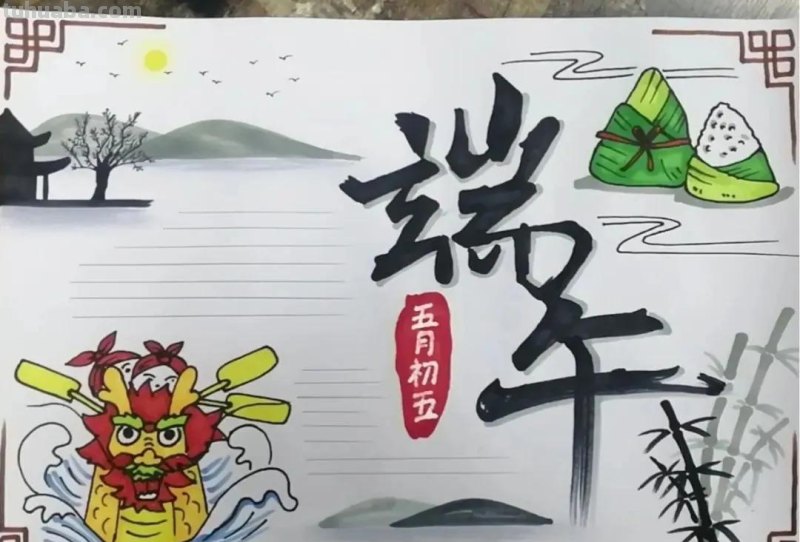 tuhuaba.com
端午
五月初五